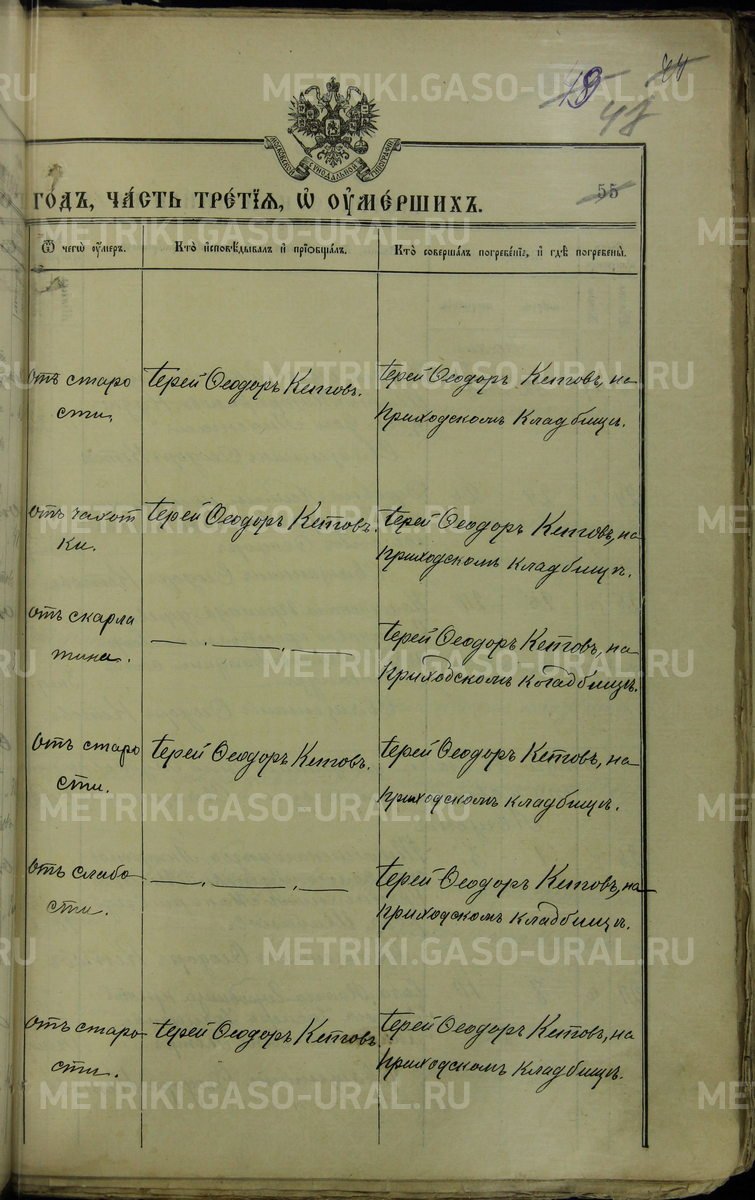 49 44
48
МОСКОВСКОЙ СѴНОДАЛЬНОЙ ТИПОГРАФІИ
55
ГОДЪ, ЧА́СТЬ ТРЕ́ТІѦ, Ѿ ОУМЕ́РШИХЪ.
Ѿ чегѡ̀ оу́меръ. Кто̀ и҆сповѣ́дывалъ и҆ прїѡбща́лъ. Кто̀ соверша́лъ погребе́нїе, и҆ гдѣ̀ погребены̀.
отъ старо Іерей Ѳеодоръ Кетовъ. Іерей Ѳеодоръ Кетовъ, на
сти. приходскомъ кладбищѣ.
отъ чахот Іерей Ѳеодоръ Кетовъ. Іерей Ѳеодоръ Кетовъ, на
ки. приходскомъ кладбищѣ.
отъ скарла — . — . — Іерей Ѳеодоръ Кетовъ, на
тина. приходскомъ кладбищѣ.
отъ старо Іерей Ѳеодоръ Кетовъ. Іерей Ѳеодоръ Кетовъ, на
сти. приходскомъ кладбищѣ.
отъ слабо — . — . — Іерей Ѳеодоръ Кетовъ, на
сти. приходскомъ кладбищѣ.
отъ старо Іерей Ѳеодоръ Кетовъ. Іерей Ѳеодоръ Кетовъ, на
сти. приходскомъ кладбищѣ.
METRIKI.GASO-URAL.RU